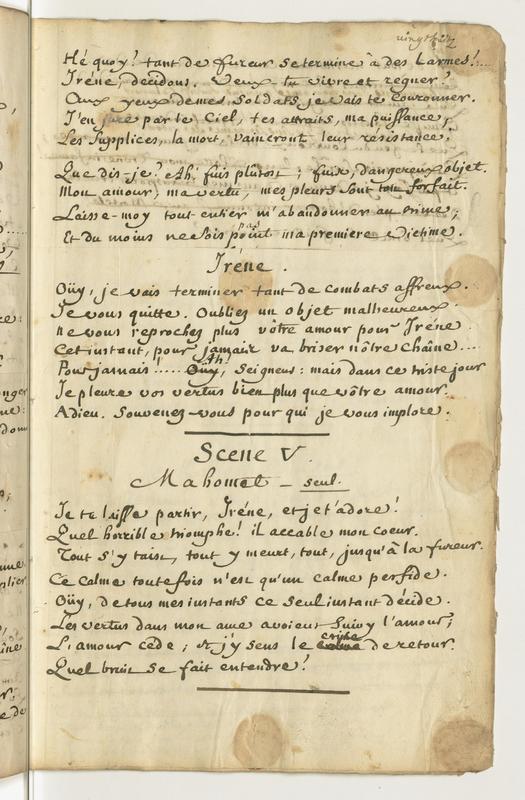 vingt
Hé quoy! tant de fureur se termine à des Larmes!....
Iréne, decidons. Veux-tu vivre et regner?
Aux yeux de mes Soldats je vais te couronner.
J'en jure par le Ciel, tes attraits, ma puissance,
Les Supplices, la mort, vaincront leur résistance.
Que dis-je? Ah! fuis plutost; fuis, dangereux objet.
Mon amour, ma vertu, mes pleurs sont ton forfait.
Laisse-moy tout entier m'abandonner au crime;
Et du moins ne sois pas point ma premiere victime.
Iréne.
Oüy, je vais terminer tant de combats affreux.
Je vous quitte. Oubliez un objet malheureux.
ne vous reprochez plus vôtre amour pour Iréne.
Cet instant, pour jamais va briser nôtre chaîne...
Pour jamais!..... Ah! Oüy, Seigneur: mais dans ce triste jour
Je pleure vos vertus bien plus que vôtre amour.
Adieu. Souvenez-vous pour qui je vous implore.
Scene V.
Mahomet - seul.
Je te laisse partir, Iréne, et je t'adore!
Quel horrible triomphe! il accable mon coeur.
Tout s'y taist, tout y meurt, tout, jusqu'à la fureur.
Ce calme toutefois n'est qu'un calme perfide.
Oüy, de tous mes instants ce seul instant décide.
Les vertus dans mon ame avoient suivy l'amour;
L'amour cede; et j'y sens le crime de retour.
Quel bruit se fait entendre!